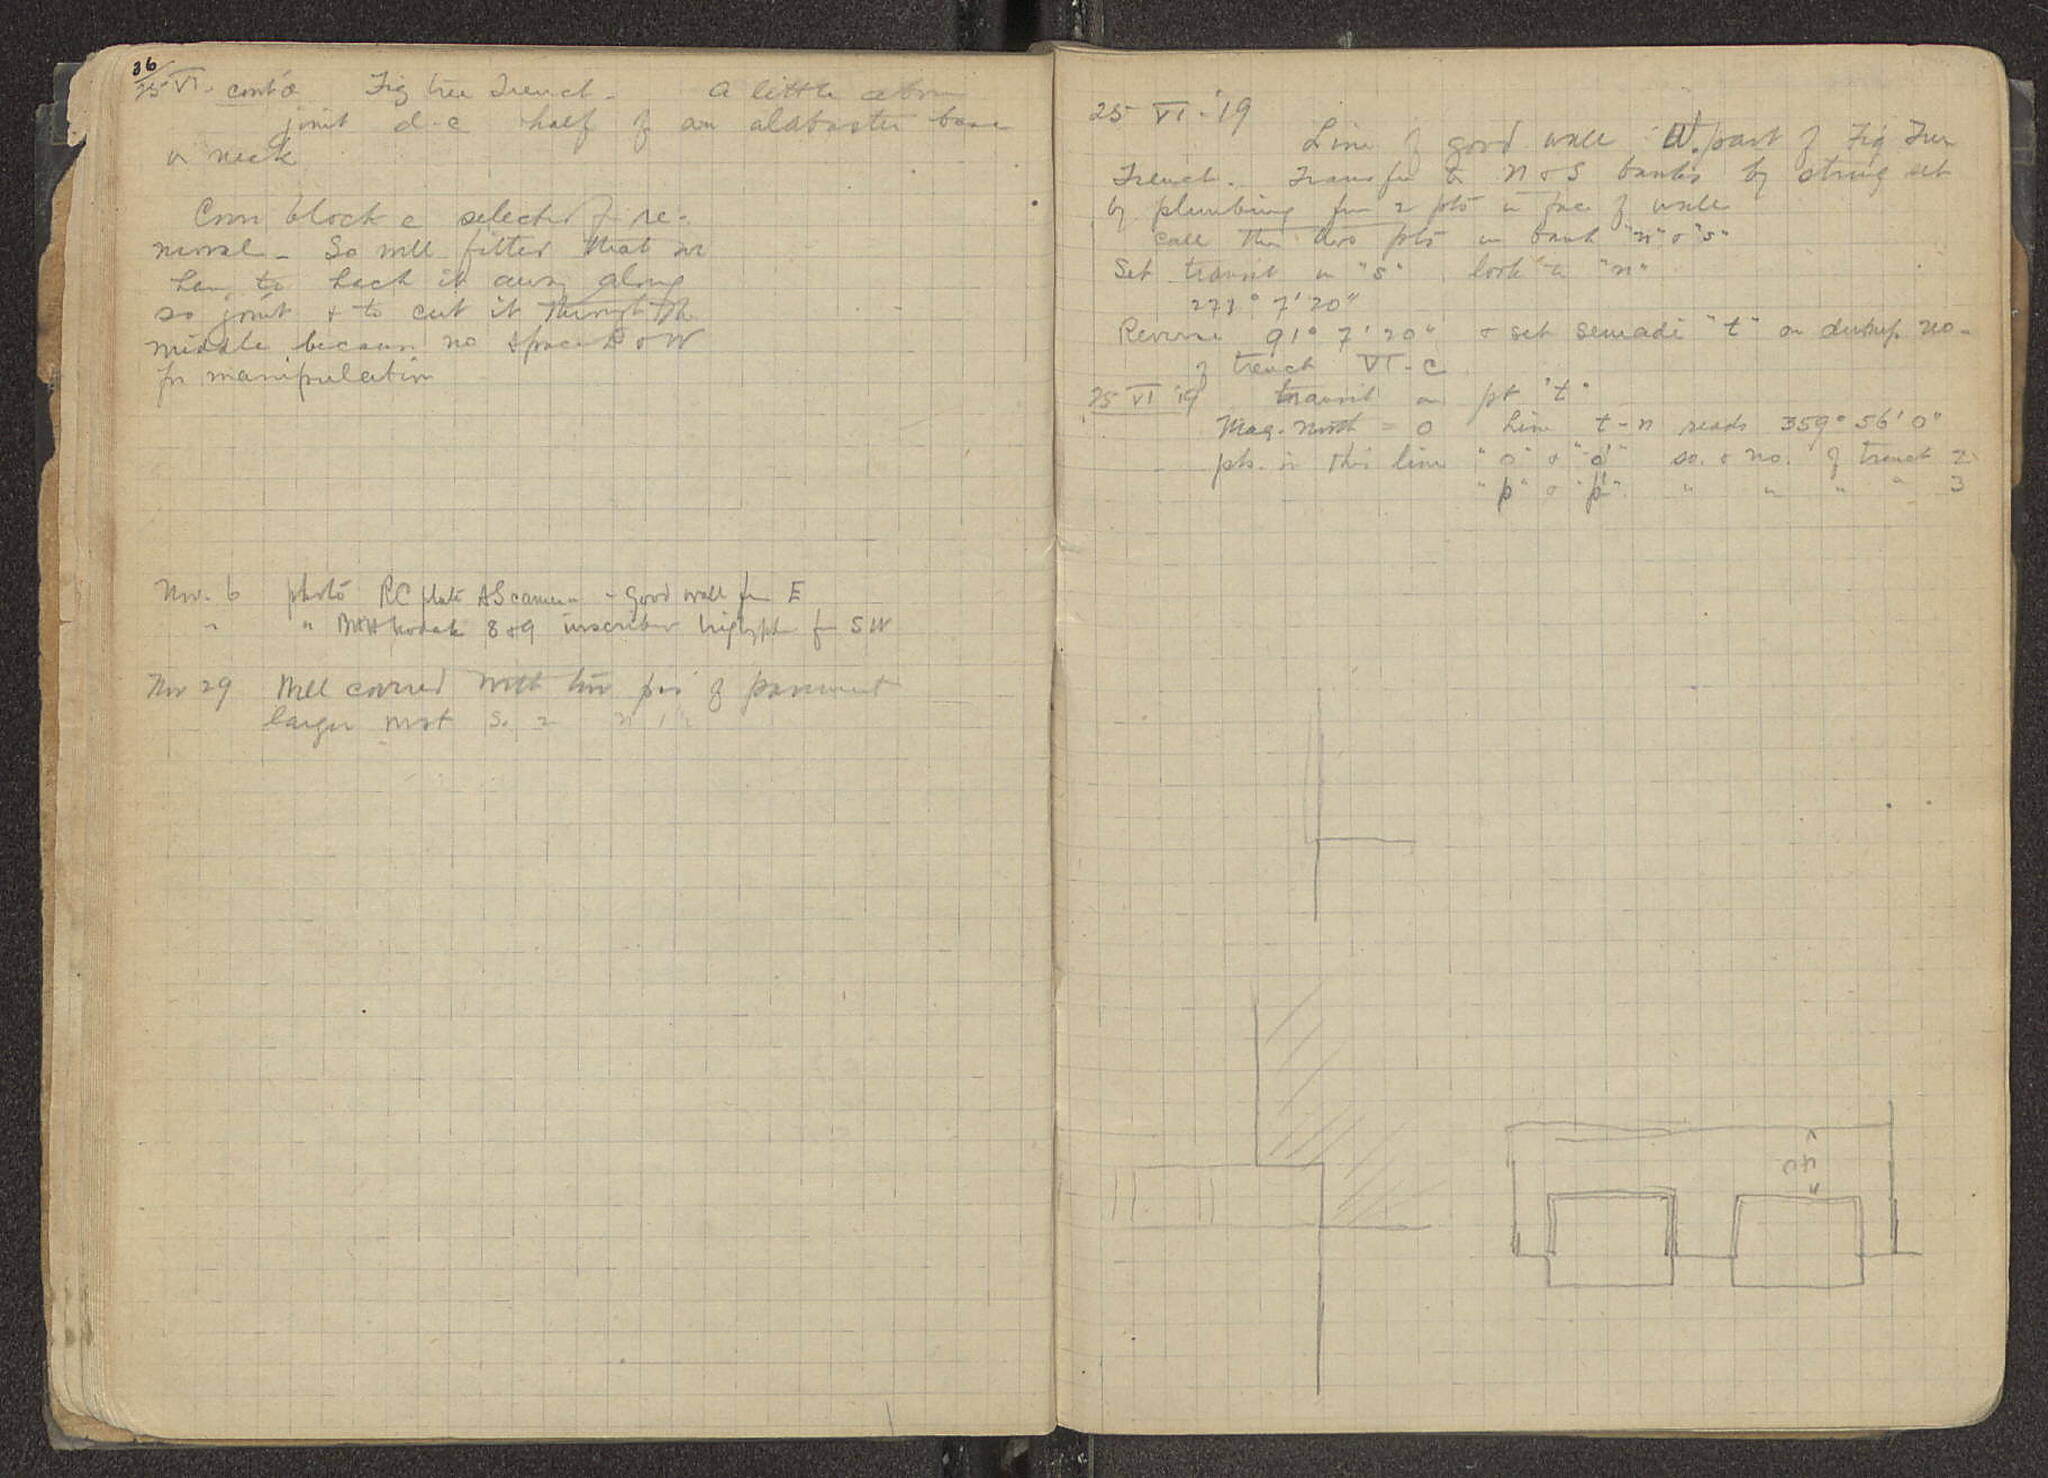 36
25 VI. cont'd Fig tree Trench - A little above
joint d-e half of an alabaster base
or neck
Corr block c selected for re-
moval - So well fitted that we
have to hack it away along
so joint & to cut it through the
middle because no space E & W
for manipulation
Nov. 6 photo RC plate AS camera - Good wall fr E
" " kodak 8 & 9 inscriber triglyph fr SW
Nov 29 Well covered with two pcs of pavement
larger most
25 VI. '19
Line of good wall W. part of Fig Tree
Trench. Transfer to N & S banks by string set
by plumbing fm 2 pts in face of wall
Call the two pts in bank "n" & "s"
Set transit on "s" look to "n"
273° 7' 20"
Reverse 91° 7' 20" & set semadi "t" on dump no-
of trench VI-C
25 VI '19 transit on pt "t"
Mag. north = 0 Line t-n reads 359° 56' 0"
pts. in this line "o" & "o'" so. & no. of trench 2
"p" & "p'" " " " " 3